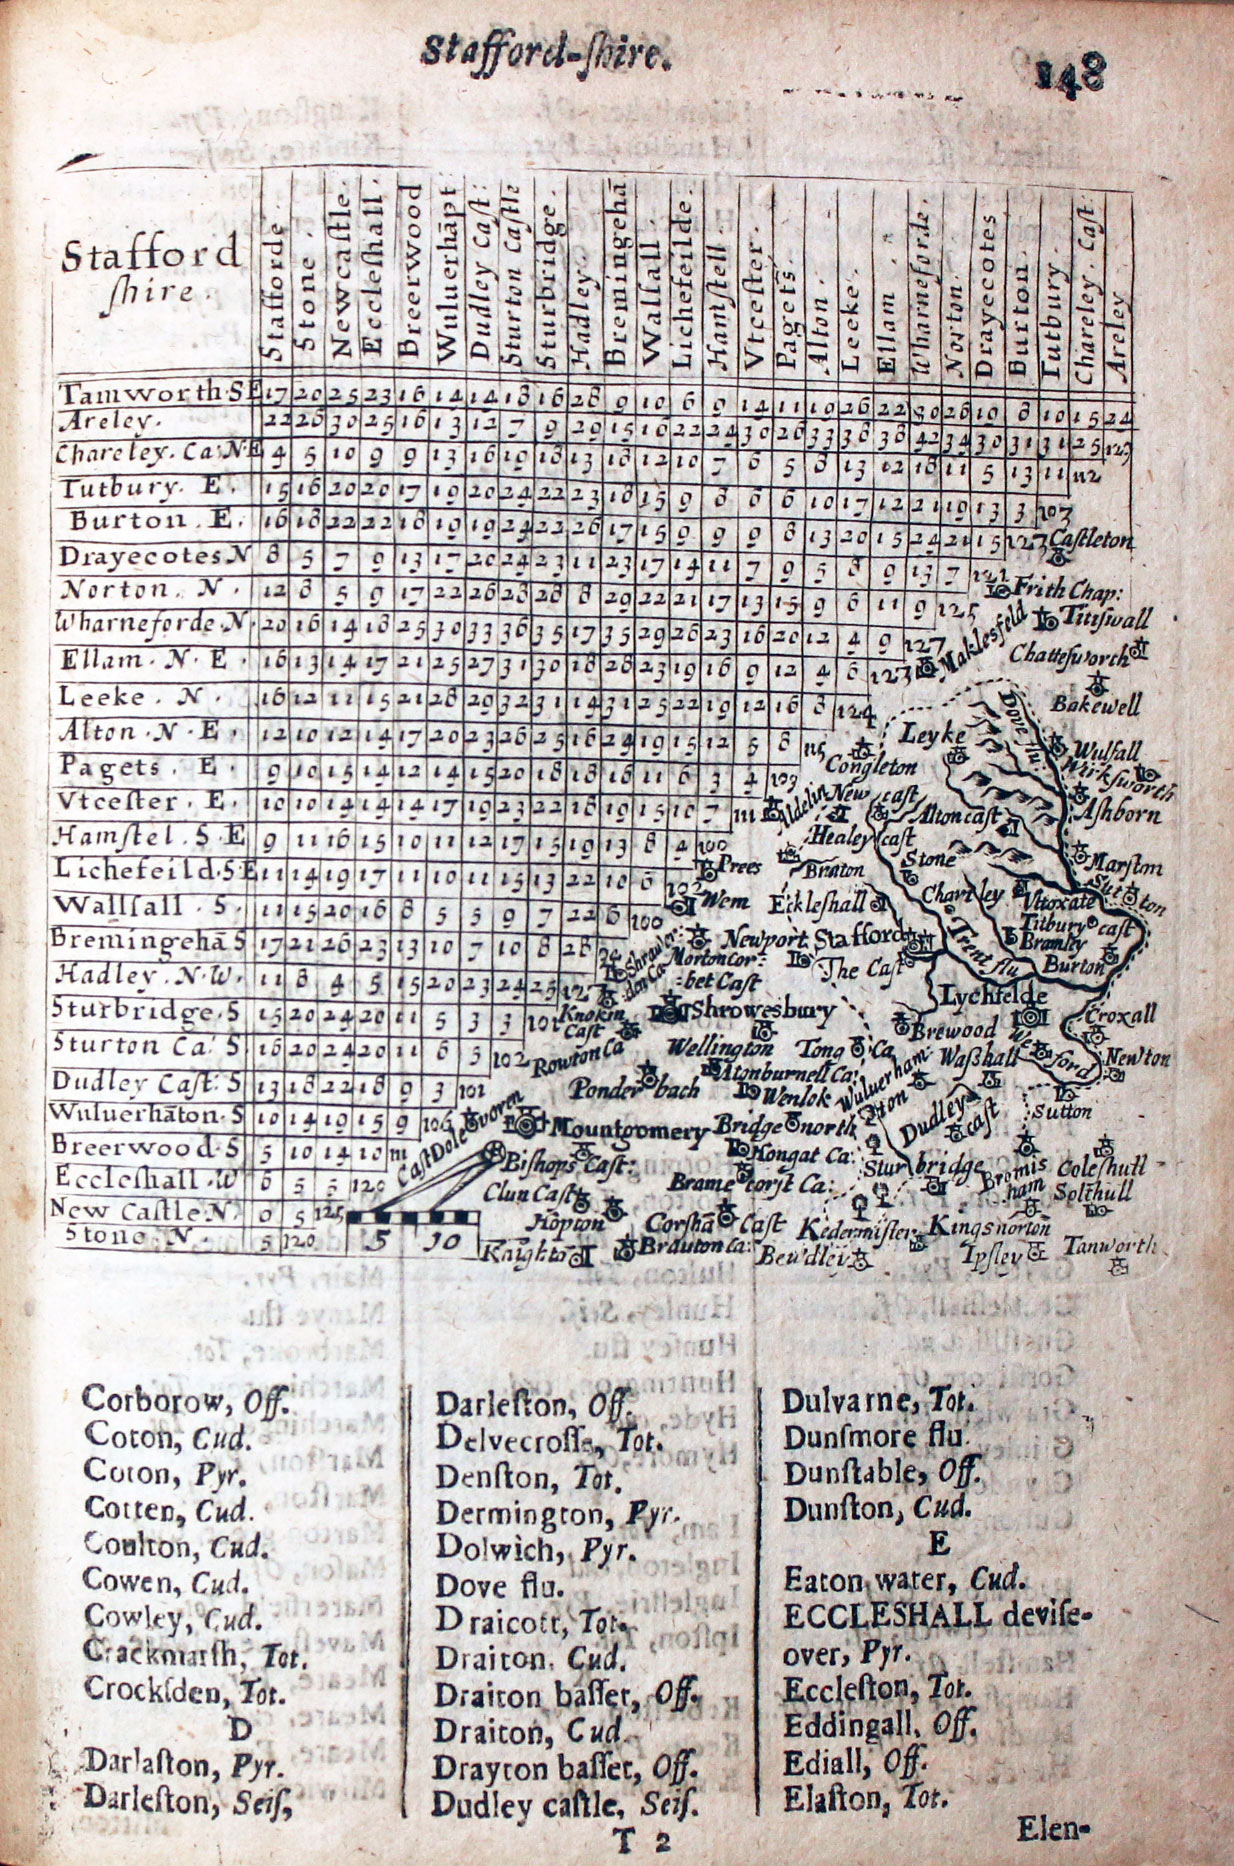 Stafford-ſhire.
148
Stafford
ſhire.
Stafforde
Stone.
Newcaſtle.
Eccleſhall.
Breerwood
Wuluerhāpt:
Dudley Caſt:
Sturton Caſtle
Sturbridge.
Hadley.
Bremingehā
Walſall
Lichefeilde
Hamſtell.
Vtceſter.
Pagets.
Alton.
Leeke.
Ellam.
Wharneforde.
Norton.
Drayecotes
Burton.
Tutbury.
Chareley. Caſt:
Areley.
Tamworth·S E 17 20 25 23 16 14 14 18 16 28 9 10 6 9 14 11 19 26 22 30 26 19 8 10 15 24
Areley. 22 26 30 25 16 13 12 7 9 29 15 16 22 24 30 26 33 38 38 42 34 30 31 31 25 123
Chareley. Ca: N·E 4 5 10 9 9 13 16 19 18 13 18 12 10 7 6 5 8 13 12 18 11 5 13 11 112
Tutbury. E. 15 16 20 20 17 19 20 24 22 23 18 15 9 8 6 6 10 17 12 21 19 13 3 107
Burton. E. 16 18 22 22 18 19 19 24 22 26 17 15 9 9 9 8 13 20 15 24 21 15 127
Drayecotes N 8 5 7 9 13 17 20 24 23 11 23 17 14 11 7 9 5 8 9 13 7 121
Norton. N. 12 8 5 9 17 22 26 28 28 8 29 22 21 17 13 15 9 6 11 9 125
Wharneforde·N· 20 16 14 18 25 30 33 36 35 17 35 29 26 23 16 20 12 4 9 127
Ellam· N· E· 16 13 14 17 21 25 27 31 30 18 28 23 19 16 9 12 4 6 123
Leeke. N. 16 12 11 15 21 28 29 32 31 14 31 25 22 19 12 16 8 124
Alton·N·E. 12 10 12 14 17 20 23 26 25 16 24 19 15 12 5 8 115
Pagets. E. 9 10 15 14 12 14 15 20 18 18 16 11 6 3 4 103
Vtceſter. E. 10 10 14 14 14 17 19 23 22 18 19 15 10 7 111
Hamſtel. S. E 9 11 16 15 10 11 12 17 15 19 13 8 4 100
Lichefeild·S E 11 14 19 17 11 10 11 15 13 22 10 6 102
Wallſall. S. 11 15 20 16 8 5 5 9 7 22 6 100
Bremingehā S 17 21 26 23 13 10 7 10 8 28 94
Hadley. N. W. 11 8 4 5 15 20 23 24 25 127
Sturbridge. S 15 20 24 20 11 5 3 3 101
Sturton Ca: S 16 20 24 20 11 6 5 102
Dudley Caſt: S 13 18 22 18 9 3 101
Wuluerhāton. S 10 14 19 15 9 106
Breerwood. S 5 10 14 10 111
Eccleſhall. W 6 5 5 120
New Caſtle N. 9 5 125
Stone. N. 5 120
5 10
Caſtleton
Frith Chap:
Maklesfeld
Titiſwall
Chatteſworth
Bakewell
Dove flu:
Leyke
Congleton
Wulfall
Wirkſworth
Aſhborn
New caſt
Altoncaſt
Healey caſt
Stone
Marſton
Sutton
Prees
Braton
Chartley
Vtoxate
Wem
Eckleſhall
Titbury caſt
Bramley
Newport
Stafford
Trent flu
Burton
Morton Cor-
bet Caſt
The Caſt
Lychfelde
Knokin
Caſt
Shrowesbury
Brewood
Croxall
Rowton Ca
Wellington
Tong Ca
Waßhall
Weford
Newton
Ponderbach
Atonburnell Ca:
Wenlok
Wuluerham-
ton
Dudley caſt
Sutton
Caſt Dolevoren
Mountgomery
Bridgenorth
Hongat Ca:
Biſhops Caſt:
Sturbridge
Bromis
ham
Coleſhull
Clun Caſt
Bramecorſt Ca:
Solthull
Hopton
Corſhā Caſt
Kedermiſter
Kingsnorton
Knighto
Brauton Ca:
Bewdley
Ipſley
Tanworth
Corborow, Off.
Coton, Cud.
Coton, Pyr.
Cotten, Cud.
Coulton, Cud.
Cowen, Cud.
Cowley, Cud.
Crackmarſh, Tot.
Crockſden, Tot.
D
Darlaſton, Pyr.
Darleſton, Seiſ,
Darleſton, Off.
Delvecroſſe, Tot.
Denſton, Tot.
Dermington, Pyr.
Dolwich, Pyr.
Dove flu.
Draicott, Tot.
Draiton. Cud.
Draiton baſſet, Off.
Draiton, Cud.
Drayton baſſet, Off.
Dudley caſtle, Seiſ.
Dulvarne, Tot.
Dunſmore flu.
Dunſtable, Off.
Dunſton, Cud.
E
Eaton water, Cud.
ECCLESHALL deviſe-
over, Pyr.
Eccleſton, Tot.
Eddingall. Off.
Ediall, Off.
Elaſton, Tot.
T 2
Elen-